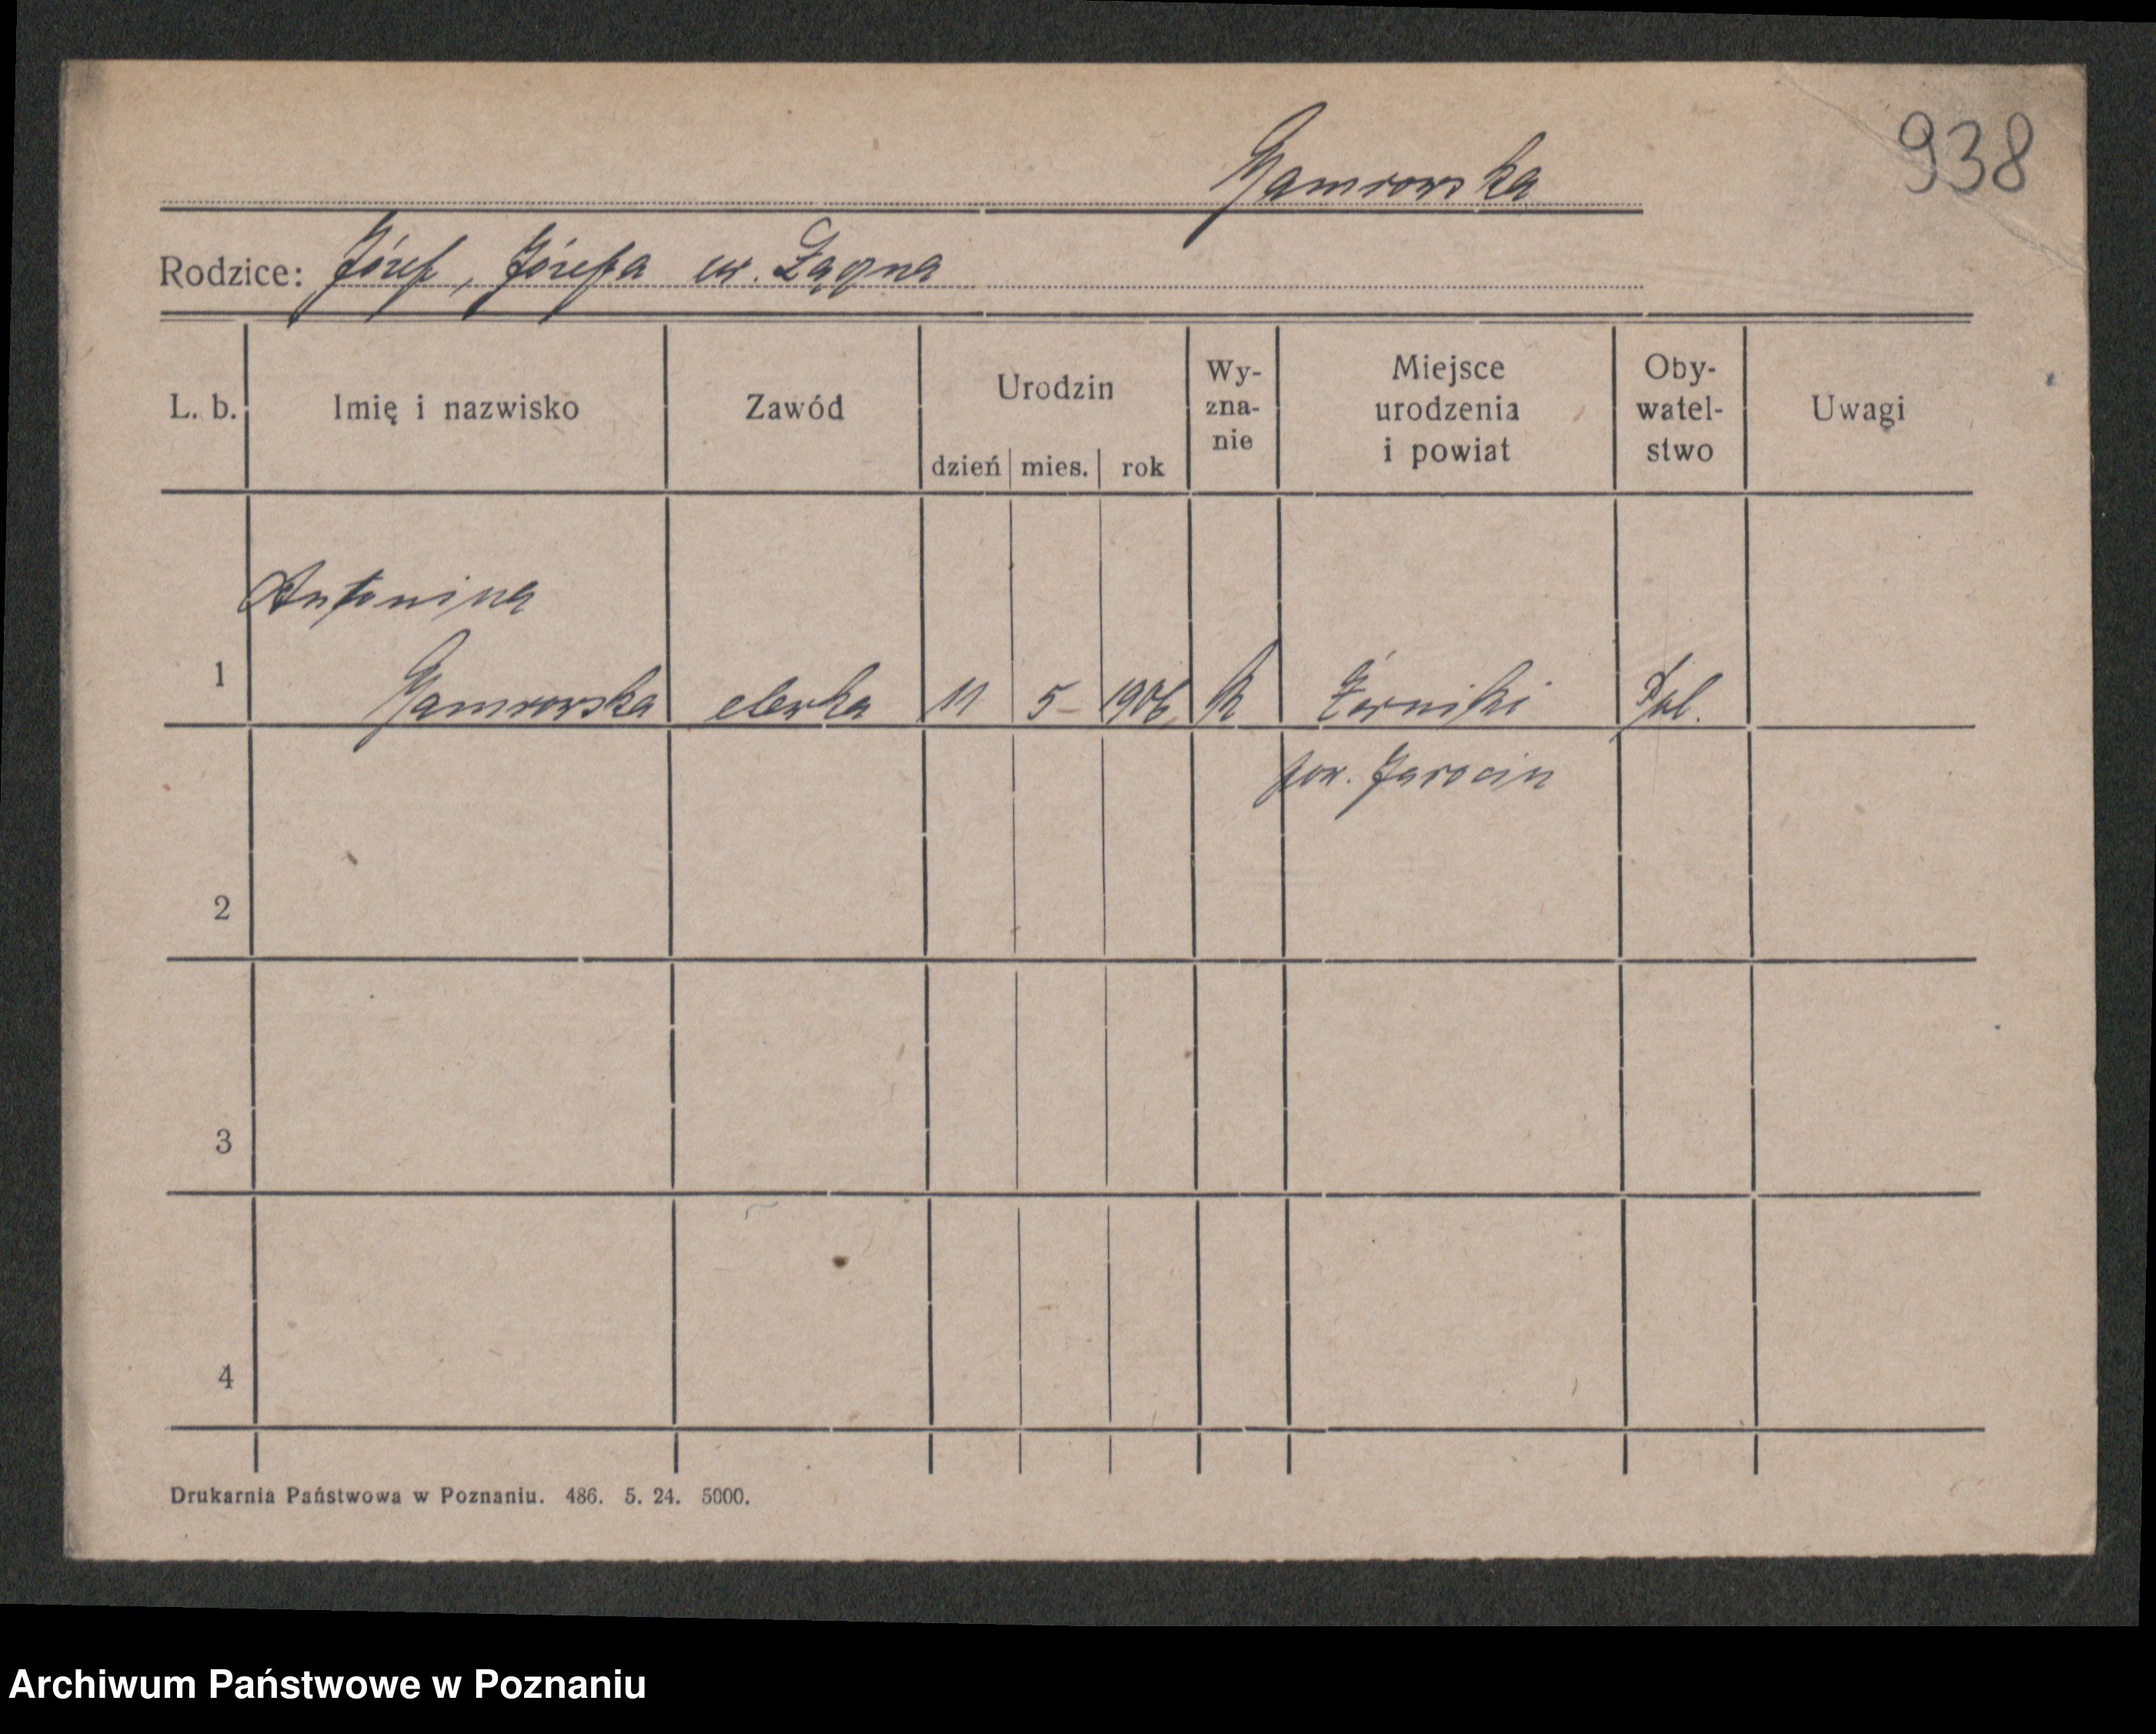 938
Gamrowska
Rodzice: Józef, Józefa ur. Łagna
L. b. Imię i nazwisko Zawód Urodzin dzień mies. rok Wy-zna-nie Miejsce urodzenia i powiat Oby-watel-stwo Uwagi
Antonina
1 Gamrowska 11 5 1906 k Żerniki Pol.
pow. Jarocin
2
3
4
Drukarnia Państwowa w Poznaniu. 486. 5. 24. 5000.
Archiwum Państwowe w Poznaniu